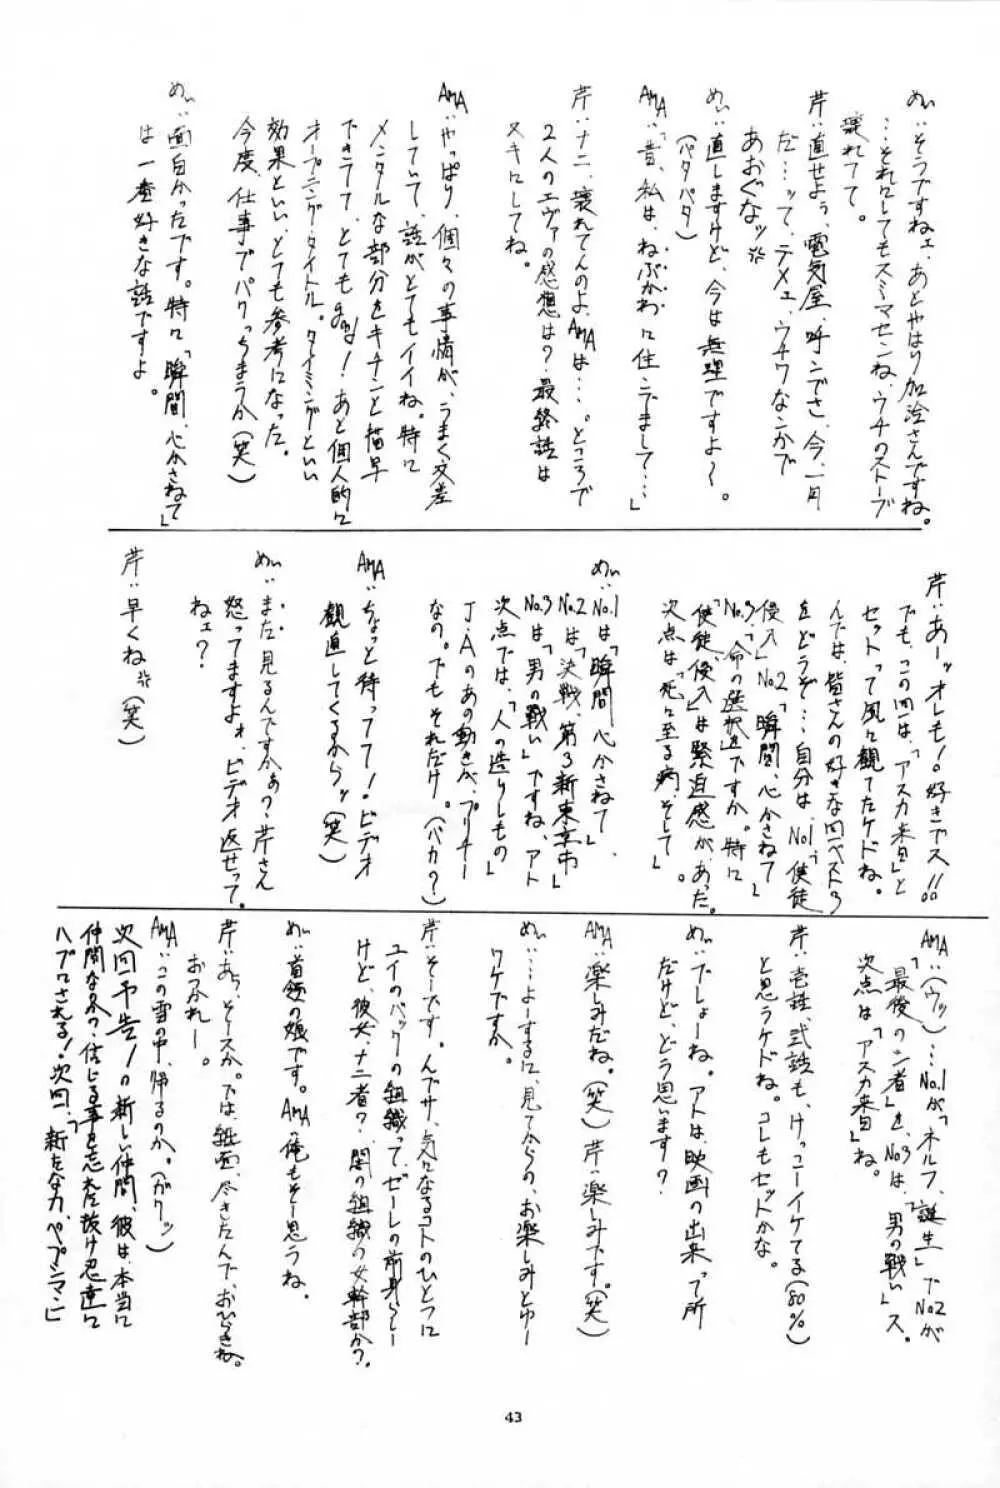 めぃ：そうですねェ、あとやはり加治さんですね。
…それにしてもスミマセンね、ウチのストーブ
壊れてて。
芹：直せよぅ、電気屋、呼ンでさ、今、一月
だ…ッて、テメェ、ウチワなンかで
あおぐなッ
めぃ：直しますけど、今は無理ですよ〜。
(パタパタ)
AMA：「昔、私は、ねぶかわに住ンでまして…」
芹：ナニ、壊れてんのよ、AMAは…。ところで
2人のエヴァの感想は？最終話は
ヌキにしてね。
AMA：やっぱり、個々の事情が、うまく交差
していて、話がとてもイイね。特に
メンタルな部分をキチンと描早
できてて、とてもgood！あと個人的に
オープニング・タイトル。タイミングといい
効果といい、とても参考になった。
今度、仕事でパクっちまうか(笑)
めぃ：面白かったです。特に「瞬間、心かさねて」
は一番好きな話ですよ。
芹：あーッオレも！好きでス！！
でも、この回は、「アスカ来日」と
セットって風に観てたケドね。
んでは、皆さんの好きな回ベスト3
をどうぞ…自分は、No.1「使徒
侵入」No.2「瞬間、心かさねて」
No.3、「命の選択を」ですか。特に
「使徒、侵入」は緊迫感が、あった。
次点は「死に至る病、そして」。
めぃ：No.1は「瞬間、心かさねて」、
No.2は「決戦、第3新東京市」
No.3は「男の戦い」ですね、アト
次点では、「人の造りしもの」
J・Aのあの動きが、プリチー
なの。でもそれだけ。(バカ？)
AMA：ちょっと待ってて！ビデオ
観直してくるからッ(笑)
めぃ：まだ見るんですかぁ？芹さん
怒ってますよォ、ビデオ返せって。
ねェ？
芹：早くね(笑)
AMA：(ウッ)…No.1が「ネルフ、誕生」でNo.2が
「最後のシ者」を、No.3は、「男の戦い」ス。
次点は「アスカ来日」ね。
芹：壱話、弐話も、けっコーイケてる(80%)
と思うケドね。コレもセットかな。
めぃ：でしょーね。アトは、映画の出来って所
だけど、どう思います？
AMA：楽しみだね。(笑) 芹：楽しみです。(笑)
めぃ：…よーするに、見てからの、お楽しみとゆー
ワケですか。
芹：そーです。んでサ、気になるコトのひとつに
ユイのバックの組織って、ゼーレの前身らしー
けど、彼女、ナニ者？闇の組織の女幹部か？。
めぃ：首領の娘です。AMA：俺もそー思うね。
芹：あら、そースか。では、紙面、尽きたんで、おひらきね。
おつかれー。
AMA：この雪の中、帰るのか。(ガクッ)
次回予告！の新しい仲間、彼は、本当に
仲間なのか、信じる事を忘れた抜け忍達に
ハブにされる！次回、「新たな力、ペプシマン」
43